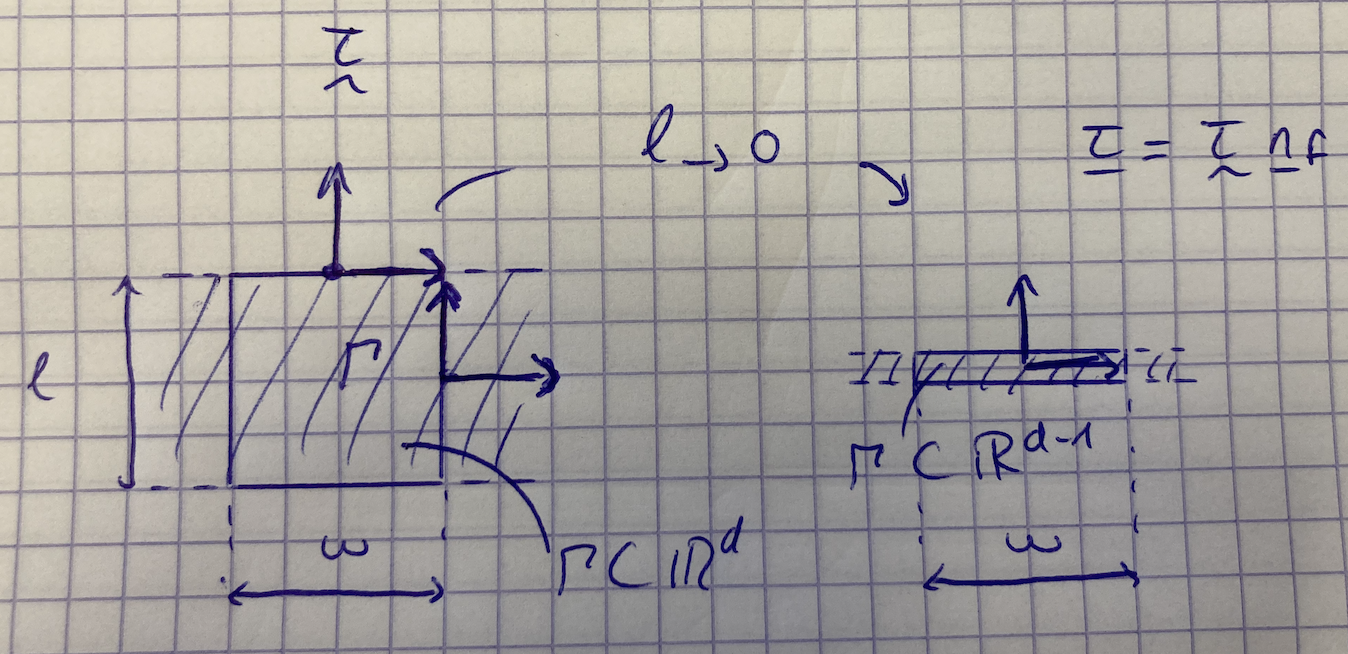 τ
~
l → 0
τ = τ n_f
l
Γ
Γ ⊂ ℝ^d
Γ ⊂ ℝ^{d-1}
ω
ω